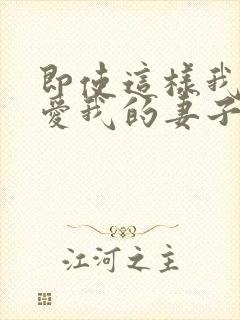 即使這樣我
愛我的妻子
江河之主